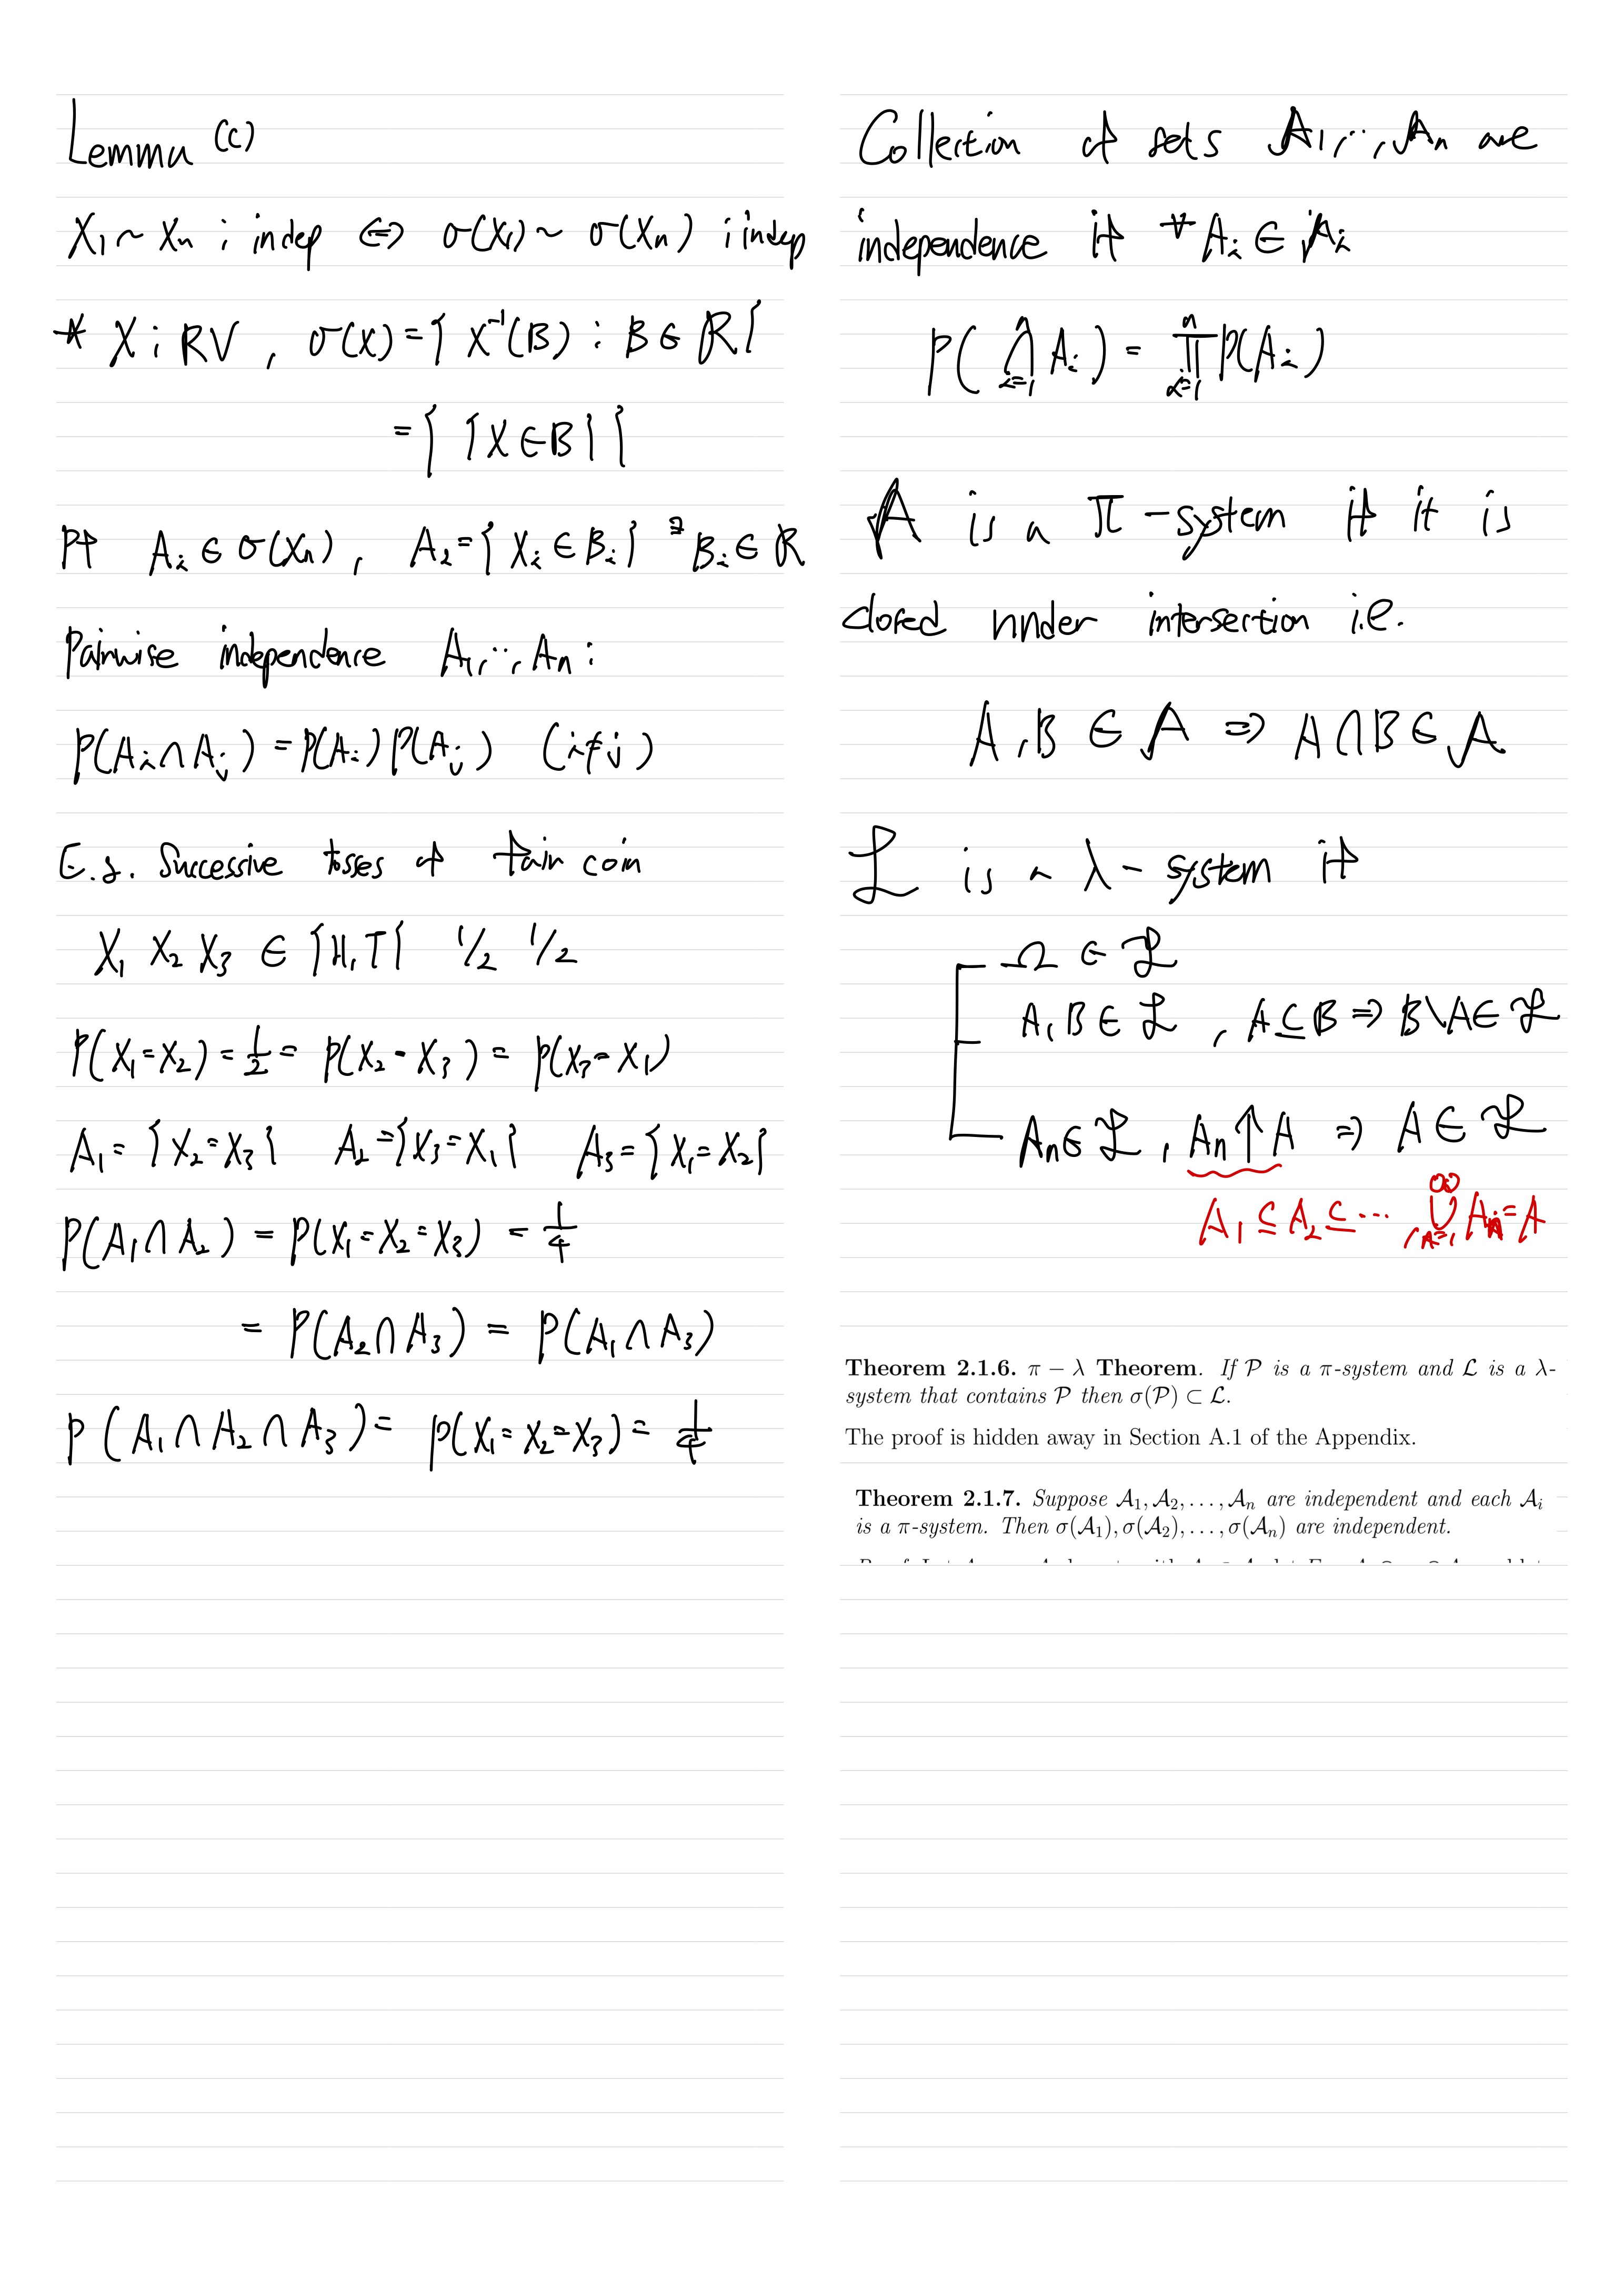 Lemma (c)
X₁ ~ Xₙ : indep ⇔ σ(X₁) ~ σ(Xₙ) : indep
* X : RV , σ(X) = { X⁻¹(B) : B ∈ ℛ }
= { {X ∈ B} }
Pf Aᵢ ∈ σ(Xₙ) , A₂ = { Xᵢ ∈ Bᵢ } ∃Bᵢ ∈ ℛ
Pairwise independence A₁, ⋯, Aₙ :
P(Aᵢ ∩ Aⱼ) = P(Aᵢ) P(Aⱼ) (i ≠ j)
E.g. Successive tosses of fair coin
X₁ X₂ X₃ ∈ {H, T} 1/2 1/2
P(X₁ = X₂) = 1/2 = P(X₂ = X₃) = P(X₃ = X₁)
A₁ = {X₂ = X₃} A₂ = {X₃ = X₁} A₃ = {X₁ = X₂}
P(A₁ ∩ A₂) = P(X₁ = X₂ = X₃) = 1/4
= P(A₂ ∩ A₃) = P(A₁ ∩ A₃)
P(A₁ ∩ A₂ ∩ A₃) = P(X₁ = X₂ = X₃) = 1/4
Collection of sets 𝒜₁, ⋯, 𝒜ₙ are
independence if ∀Aᵢ ∈ 𝒜ᵢ
P(⋂ᵢ₌₁ⁿ Aᵢ) = ∏ᵢ₌₁ⁿ P(Aᵢ)
𝒜 is a π - system if it is
closed under intersection i.e.
A, B ∈ 𝒜 ⇒ A ∩ B ∈ 𝒜
ℒ is a λ - system if
Ω ∈ ℒ
A, B ∈ ℒ , A ⊆ B ⇒ B \ A ∈ ℒ
Aₙ ∈ ℒ , Aₙ ↑ A ⇒ A ∈ ℒ
A₁ ⊆ A₂ ⊆ ⋯ , ⋃ₙ₌₁^∞ Aₙ = A
Theorem 2.1.6. π − λ Theorem. If 𝒫 is a π-system and ℒ is a λ-
system that contains 𝒫 then σ(𝒫) ⊂ ℒ.
The proof is hidden away in Section A.1 of the Appendix.
Theorem 2.1.7. Suppose 𝒜₁, 𝒜₂, . . . , 𝒜ₙ are independent and each 𝒜ᵢ
is a π-system. Then σ(𝒜₁), σ(𝒜₂), . . . , σ(𝒜ₙ) are independent.